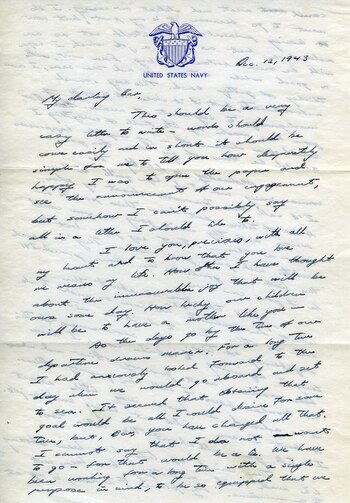 UNITED STATES NAVY
Dec. 12, 1943
My darling Bar,
This should be a very
easy letter to write - words should
come easily and in short it should be
simple for me to tell you how desperately
happy I was to open the paper and
see the announcement of our engagement,
but somehow I can't possibly say
all in a letter I should like to.
I love you, precious, with all
my heart and to know that you love
me means my life. How often I have thought
about the immeasurable joy that will be
ours some day. How lucky our children
will be to have a mother like you -
As the days go by the time of our
departure draws nearer. For a long time
I had anxiously looked forward to the
day when we would go aboard and set
to sea. It seemed that obtaining that
goal would be all I could desire for some
time, but, Bar, you have changed all that.
I cannot say that I do not want
to go - for that would be a lie. We have
been working for a long time with a single
purpose in mind, to be so equipped that we